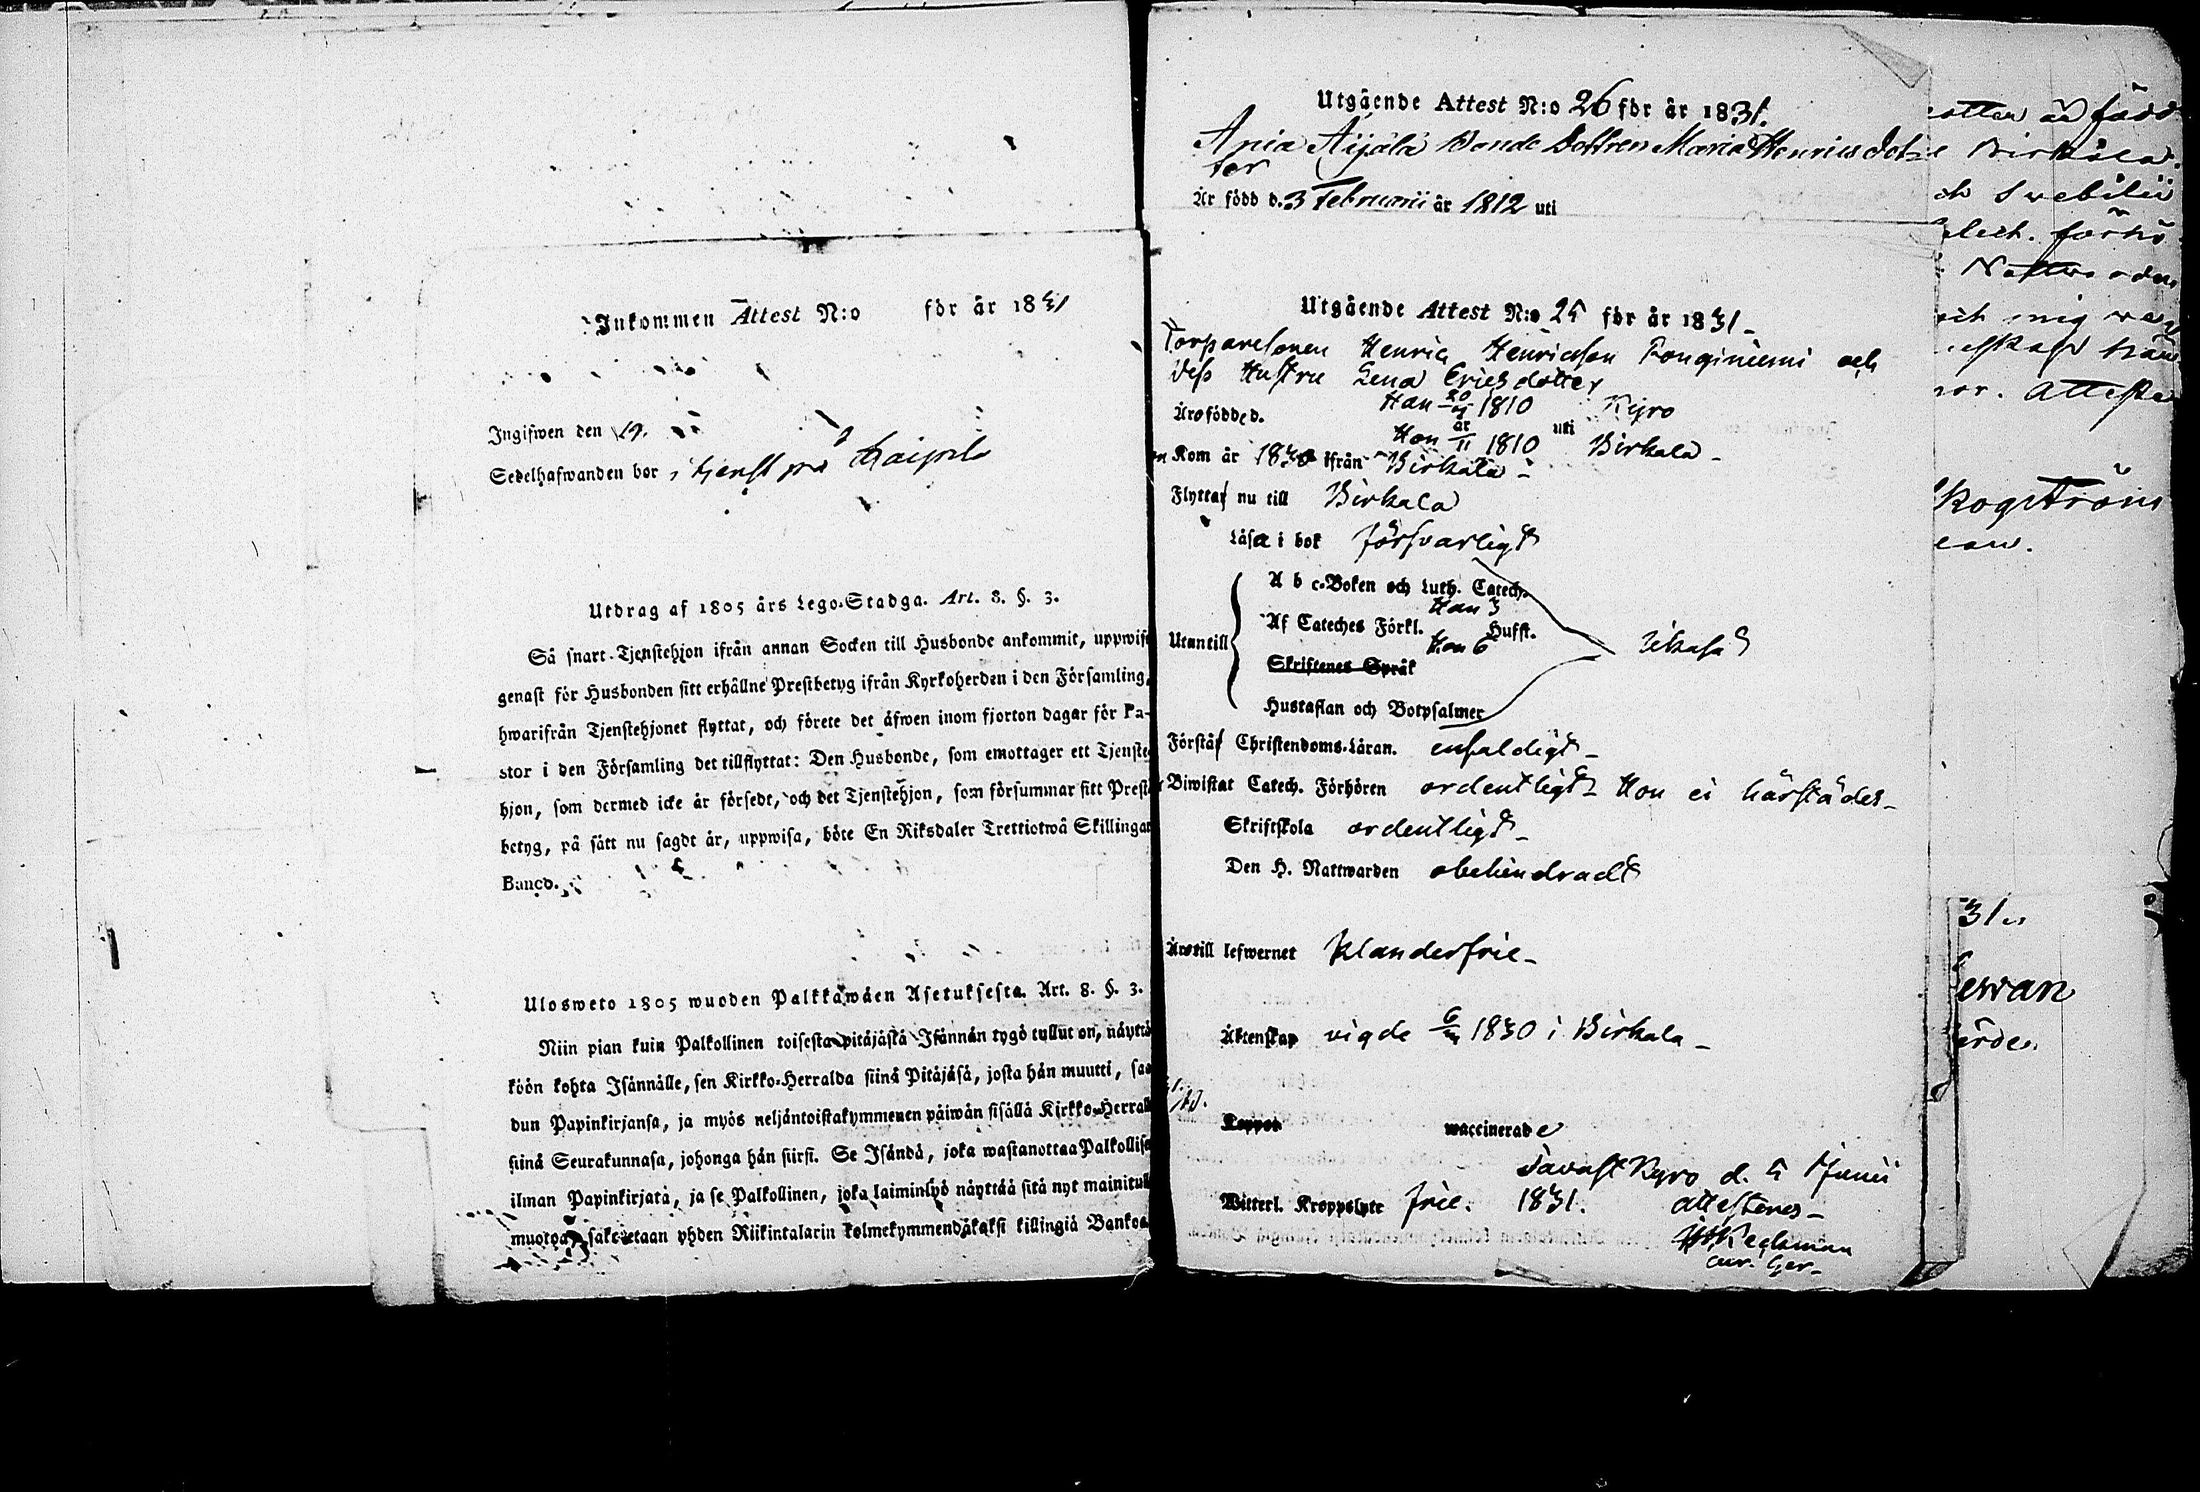 Inkommen Attest N:o för år 1831
Ingifwen den 19.
Sedelhafwanden bor i tjenst på Kaipila
Utdrag af 1805 års Lego-Stadga. Art. 8. §. 3.
Så snart Tjenstehjon ifrån annan Socken till Husbonde ankommit, uppwise
genast för Husbonden sitt erhållne Prestbetyg ifrån Kyrkoherden i den Församling,
hwarifrån Tjenstehjonet flyttat, och förete det äfwen inom fjorton dagar för Pa-
stor i den Församling det tillflyttat: Den Husbonde, som emottager ett Tjenste-
hjon, som dermed icke är försedt, och det Tjenstehjon, som försummar sitt Prest-
betyg, på sätt nu sagdt är, uppwisa, böte En Riksdaler Trettiotwå Skillingar
Banco.
Ulosweto 1805 wuoden Palkkawäen Asetuksesta. Art. 8. §. 3.
Niin pian kuin Palkollinen toisesta pitäjästä Isännän tygö tullut on, näyttä-
köön kohta Isännälle, sen Kirkko-Herralda siinä Pitäjäsä, josta hän muutti, saa-
dun Papinkirjansa, ja myös neljäntoistakymmenen päiwän sisällä Kirkko-Herralle
siinä Seurakunnasa, johonga hän siirsi. Se Isändä, joka wastanottaa Palkollisen
ilman Papinkirjatä, ja se Palkollinen, joka laiminlyö näyttää sitä nyt mainitulla
muotoa, sakoitetaan yhden Riikintalarin kolmekymmendäkaksi killingiä Bankoa.
Utgående Attest N:o 26 för år 1831.
Ania Äijälä Bonde Dottren Maria Henricsdot-
ter
Är född d. 3 Februarii år 1812 uti
Utgående Attest N:o 25 för år 1831
Torparesonen Henric Henricsson Ponginiemi och
dess Hustru Lena Ericsdotter
Äro födde d. Han 20/4 1810 uti Kyro
Hon /11 1810 Birkala
Kom år 1830 ifrån Birkala
Flytta nu till Birkala
Läsa i bok försvarligt
Utantill
A b c-Boken och Luth. Catech.
Han 3
Af Cateches Förkl. Hufst.
Hon 6
Skriftenes Språk
Hustaflan och Botpsalmer
Förstå Christendoms-Läran. enfaldigt
Biwistat Catech. Förhören ordentligt Hon ei härstädes
Skriftskola ordentligt
Den H. Nattwarden obehindradt
Äro till lefwernet klanderfrie
Äktenskap vigde 1830 i Birkala
Koppor waccinerade
Tavast Kyro d. 5 Junii
Witterl. Kroppslyte frie. 1831. attesteres
cur. Ger.
otter är född
Birkala.
och
förhö
mig
Atteste
31